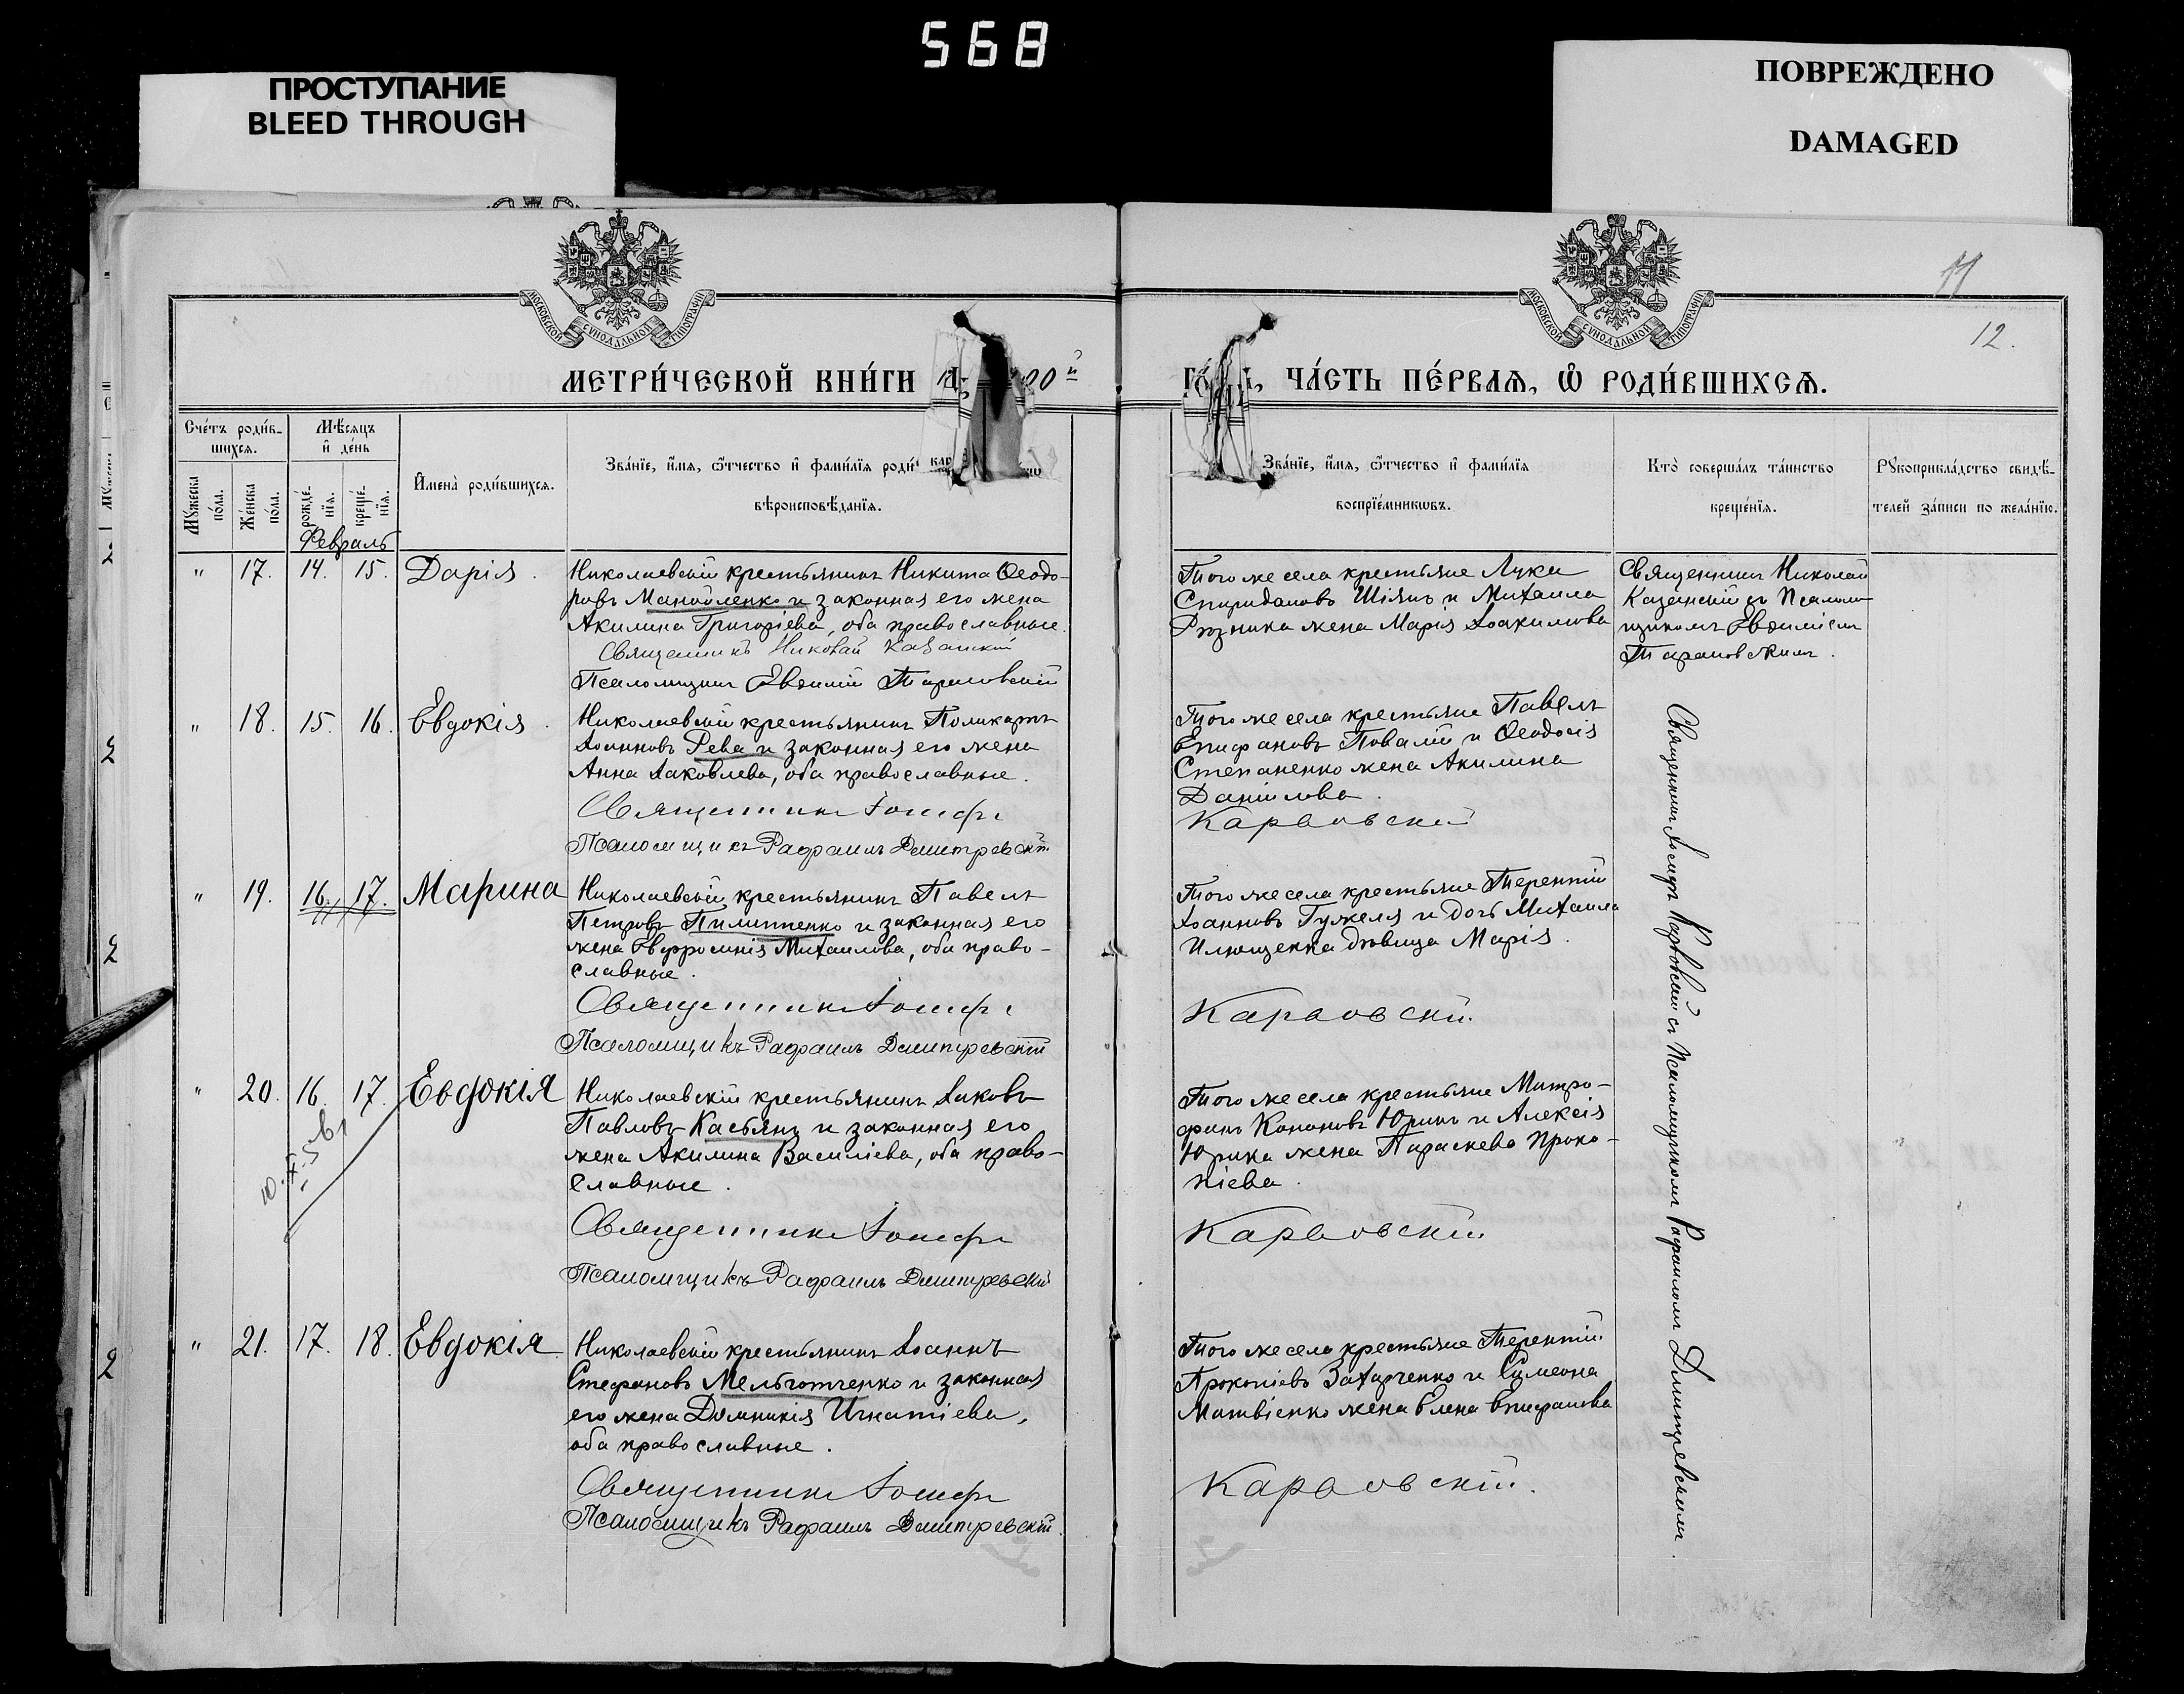 568
ПРОСТУПАНИЕ
BLEED THROUGH
ПОВРЕЖДЕНО
DAMAGED
МОСКОВСКОЙ СѴНОДАЛЬНОЙ ТИПОГРАФІИ
МОСКОВСКОЙ СѴНОДАЛЬНОЙ ТИПОГРАФІИ
12.
МЕТРИ́ЧЕСКОЙ КНИ́ГИ
00й
ЧА́СТЬ ПЕ́РВАЯ, Ѡ РОДИ́ВШИХСЯ.
Сче́тъ роди́в-
шихся.
Мѣ́сяцъ
и де́нь
Му́жеска по́ла.
Же́нска по́ла.
рожде́-
нїя.
креще́-
нїя.
И҆мена̀ роди́вшихся.
Зва́нїе, и҆́мя, ѻ҆́тчество и҆ фами́лїя роди
вѣроисповѣ́данїя.
Зва́нїе, и҆́мя, ѻ҆́тчество и҆ фами́лїя
воспрїе́мниковъ.
Кто̀ соверша́лъ та́инство
креще́нїя.
Рꙋкоприкла́дство свидѣ́-
телей за́писи по жела́нїю.
Февраль
" 17. 14. 15. Дарія.
Николаевскій крестьянинъ Никита Ѳеодо-
ровъ Манойленко и законная его жена
Акилина Григоріева, оба православные.
Священникъ Николай Казанскій
Псаломщикъ Евѳимій Тарановскій
Того же села крестьяне Лука
Спиридоновъ Шіянъ и Михаила
Рѣзника жена Марія Іоакимова
Священникъ Николай
Казанскій съ Псалом-
щикомъ Евѳиміемъ
Тарановскимъ.
" 18. 15. 16. Евдокія.
Николаевскій крестьянинъ Поликарпъ
Іоанновъ Рева и законная его жена
Анна Іаковлева, оба православные.
Священникъ Іосифъ
Псаломщикъ Рафаилъ Дмитревскій
Того же села крестьяне Павелъ
Епифановъ Повалій и Ѳеодосія
Степаненко жена Акилина
Даніилова.
Карповскій
" 19. 16. 17. Марина
Николаевскій крестьянинъ Павелъ
Петровъ Пилипенко и законная его
жена Евфросинія Михаилова, оба право-
славные.
Священникъ Іосифъ
Псаломщикъ Рафаилъ Дмитревскій
Того же села крестьяне Терентій
Іоанновъ Гужеля и дочь Михаила
Илющенка дѣвица Марія.
Карповскій
" 20. 16. 17. Евдокія
Николаевскій крестьянинъ Іаковъ
Павловъ Касьянъ и законная его
жена Акилина Василіева, оба право-
славные.
Священникъ Іосифъ
Псаломщикъ Рафаилъ Дмитревскій
Того же села крестьяне Митро-
фанъ Кононовъ Юринъ и Алексія
Юрина жена Параскева Проко-
піева.
Карповскій
" 21. 17. 18. Евдокія
Николаевскій крестьянинъ Іоаннъ
Стефановъ Мельготченко и законная
его жена Домникія Игнатіева,
оба православные.
Священникъ Іосифъ
Псаломщикъ Рафаилъ Дмитревскій
Того же села крестьяне Терентій
Прокопіевъ Захарченко и Симеона
Матвіенко жена Елена Епифанова
Карповскій.
Священникъ Іосифъ Карповскій съ Псаломщикомъ Рафаиломъ Дмитревскимъ.